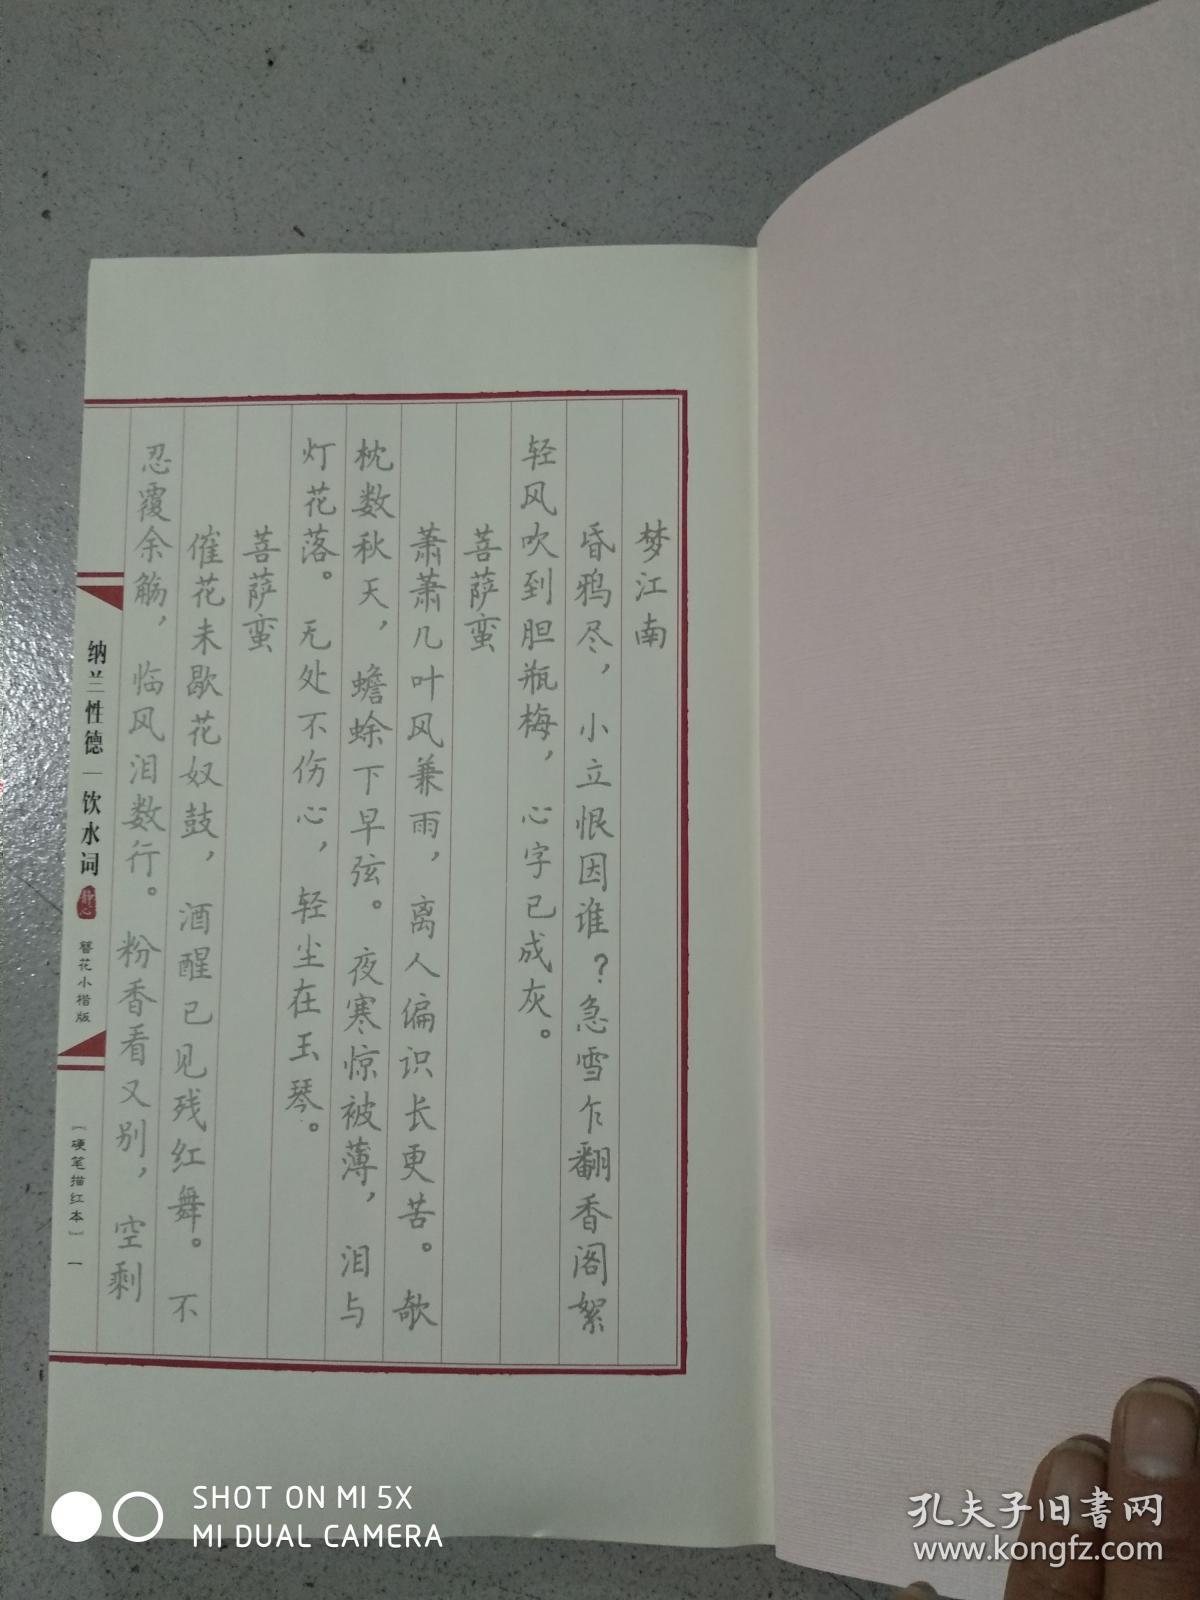 梦江南
昏鸦尽，小立恨因谁？急雪乍翻香阁絮
轻风吹到胆瓶梅，心字已成灰。
菩萨蛮
萧萧几叶风兼雨，离人偏识长更苦。欹
枕数秋天，蟾蜍下早弦。夜寒惊被薄，泪与
灯花落。无处不伤心，轻尘在玉琴。
菩萨蛮
催花未歇花奴鼓，酒醒已见残红舞。不
忍覆余觞，临风泪数行。粉香看又别，空剩
纳兰性德—饮水词
静心
簪花小楷版
【硬笔描红本】
一
SHOT ON MI 5X
MI DUAL CAMERA
孔夫子旧书网
www.kongfz.com